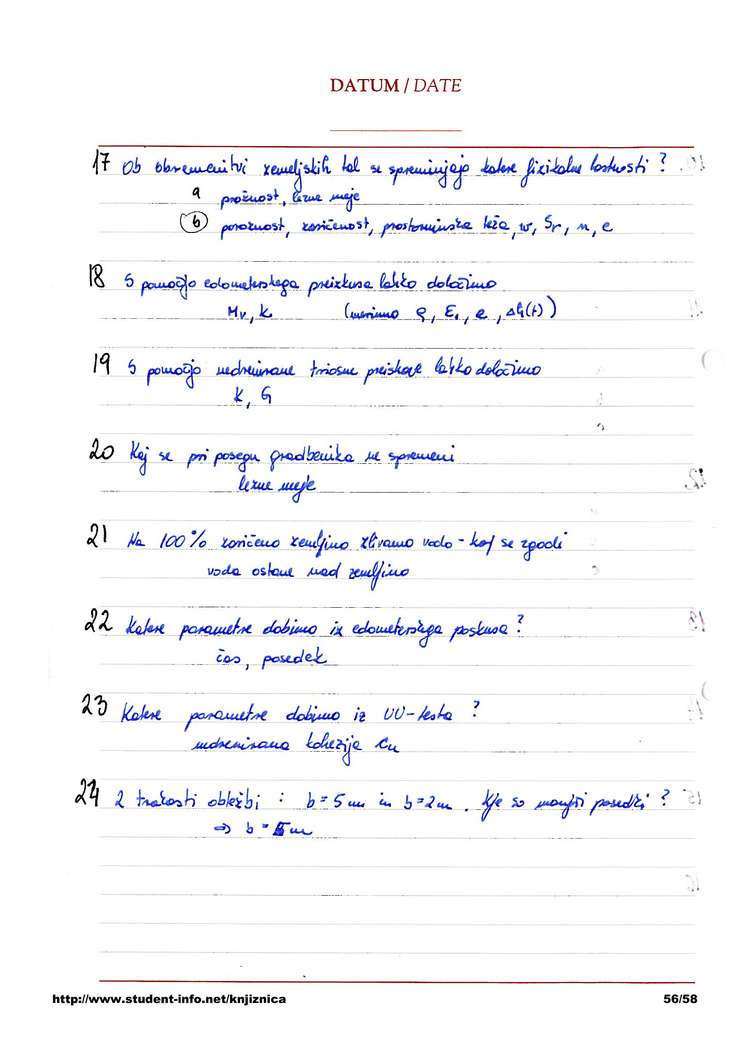 DATUM / DATE
17 Ob obremenitvi zemeljskih tal se spreminjajo katere fizikalne lastnosti ?
a prožnost, lezne meje
b poroznost, zasičenost, prostorninska teža, w, Sr, n, e
18 S pomočjo edometerskega preizkusa lahko določimo
Mv, k (merimo ρ, E1, e, Δh(t))
19 S pomočjo nedrenirane triosne preiskave lahko določimo
K, G
20 Kaj se pri posegu gradbenika ne spremeni
lezne meje
21 Na 100% zasičeno zemljino zlivamo vodo - kaj se zgodi
voda ostane nad zemljino
22 Katere parametre dobimo iz edometerskega poskusa ?
čas, posedek
23 Katere parametre dobimo iz UU-testa ?
nedrenirana kohezija cu
24 2 trakasti obtežbi : b = 5m in b = 2m. Kje so manjši posedki ?
⇒ b = 5m
http://www.student-info.net/knjiznica 56/58